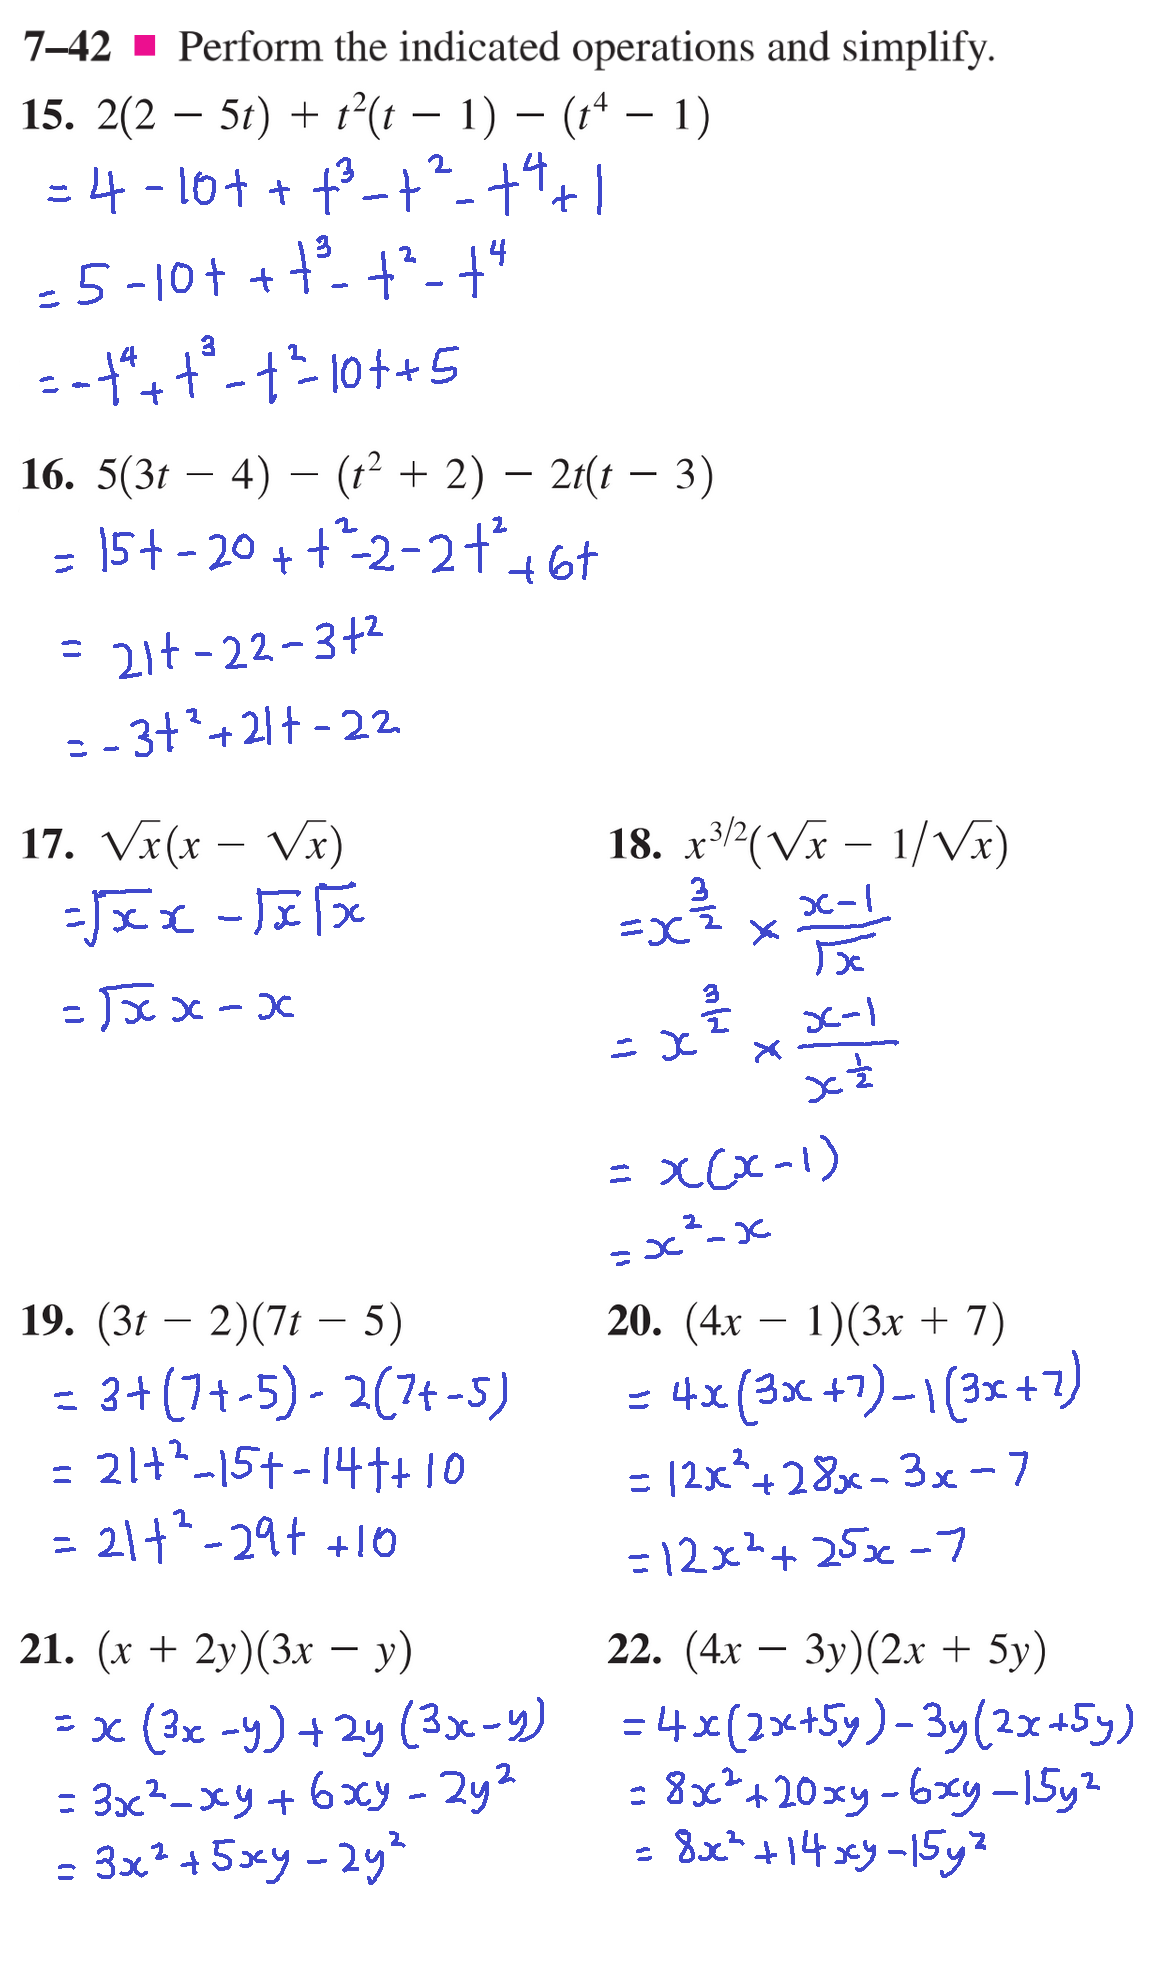 7–42 ■ Perform the indicated operations and simplify.
15. 2(2 − 5t) + t²(t − 1) − (t⁴ − 1)
= 4 - 10t + t³ - t² - t⁴ + 1
= 5 - 10t + t³ - t² - t⁴
= - t⁴ + t³ - t² - 10t + 5
16. 5(3t − 4) − (t² + 2) − 2t(t − 3)
= 15t - 20 + t² - 2 - 2t² + 6t
= 21t - 22 - 3t²
= - 3t² + 21t - 22
17. √x(x − √x)
= √x x - √x √x
= √x x - x
18. x^{3/2}(√x − 1/√x)
= x^{3/2} × (x-1)/√x
= x^{3/2} × (x-1)/x^{1/2}
= x(x-1)
= x² - x
19. (3t − 2)(7t − 5)
= 3t(7t-5) - 2(7t-5)
= 21t² - 15t - 14t + 10
= 21t² - 29t + 10
20. (4x − 1)(3x + 7)
= 4x(3x+7) - 1(3x+7)
= 12x² + 28x - 3x - 7
= 12x² + 25x - 7
21. (x + 2y)(3x − y)
= x(3x-y) + 2y(3x-y)
= 3x² - xy + 6xy - 2y²
= 3x² + 5xy - 2y²
22. (4x − 3y)(2x + 5y)
= 4x(2x+5y) - 3y(2x+5y)
= 8x² + 20xy - 6xy - 15y²
= 8x² + 14xy - 15y²